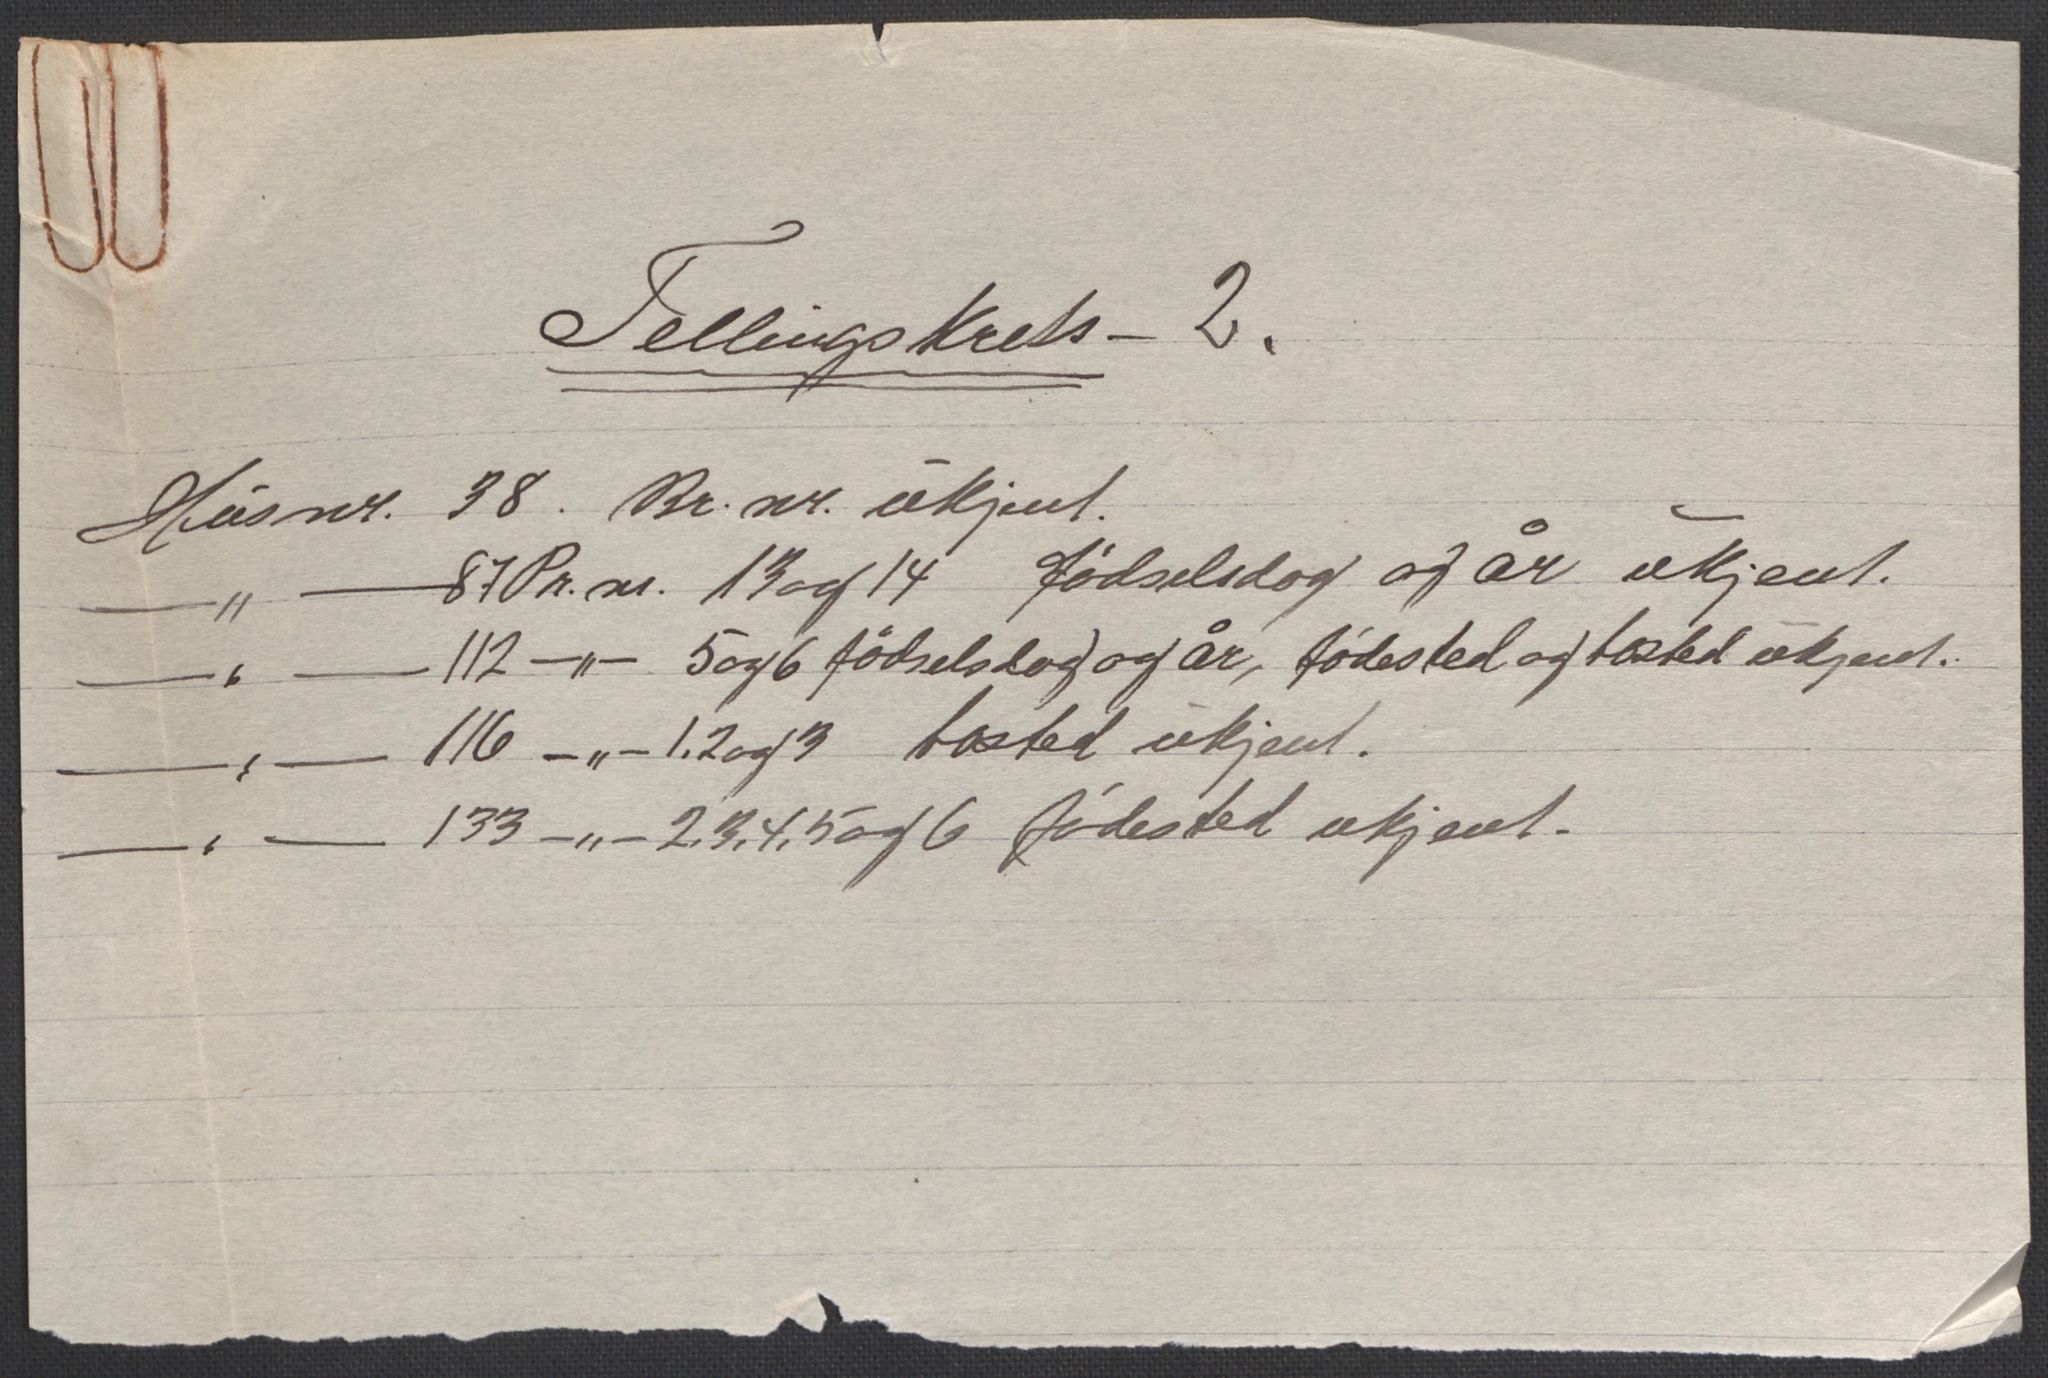 Tellingskrets – 2.
Husnr. 38. Br. nr. ukjent.
—„— 87 Pr. nr. 13 og 14 fødselsdag og år ukjent.
—„— 112 –„– 5 og 6 fødselsdag og år, fødested og bosted ukjent.
—„— 116 –„– 1.2 og 3 bosted ukjent.
—„— 133 –„– 2,3,4,5 og 6 fødested ukjent.